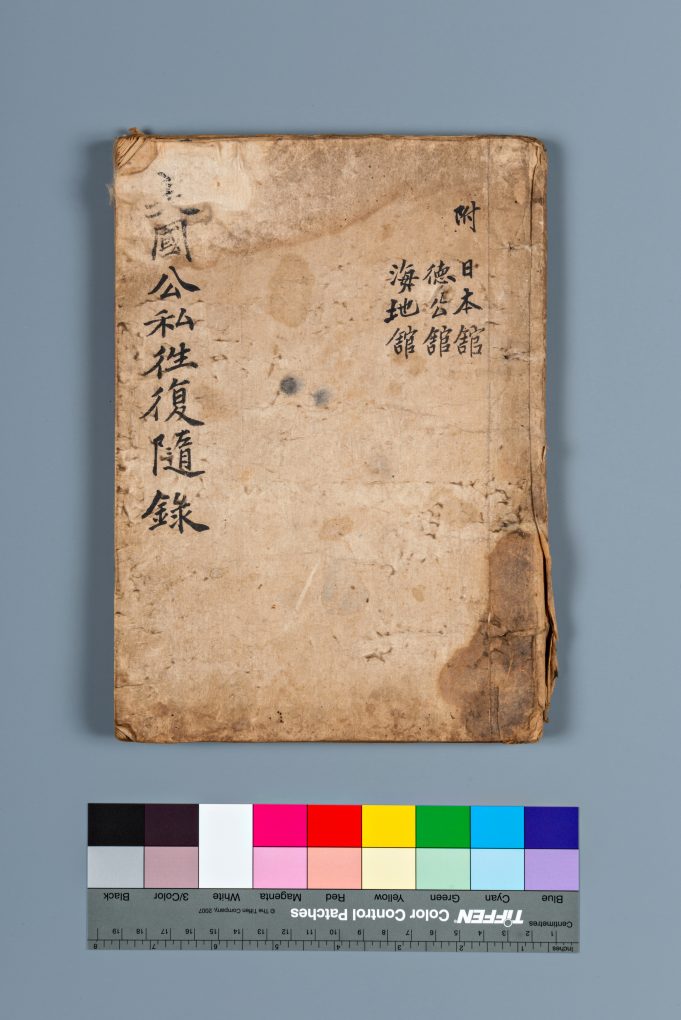 附 日本舘
徳公舘
海地舘
美國公私徃復隨錄
Inches 1 2 3 4 5 6 7 8
Centimetres 1 2 3 4 5 6 7 8 9 10 11 12 13 14 15 16 17 18 19
TIFFEN Color Control Patches © The Tiffen Company, 2007
Blue Cyan Green Yellow Red Magenta White 3/Color Black